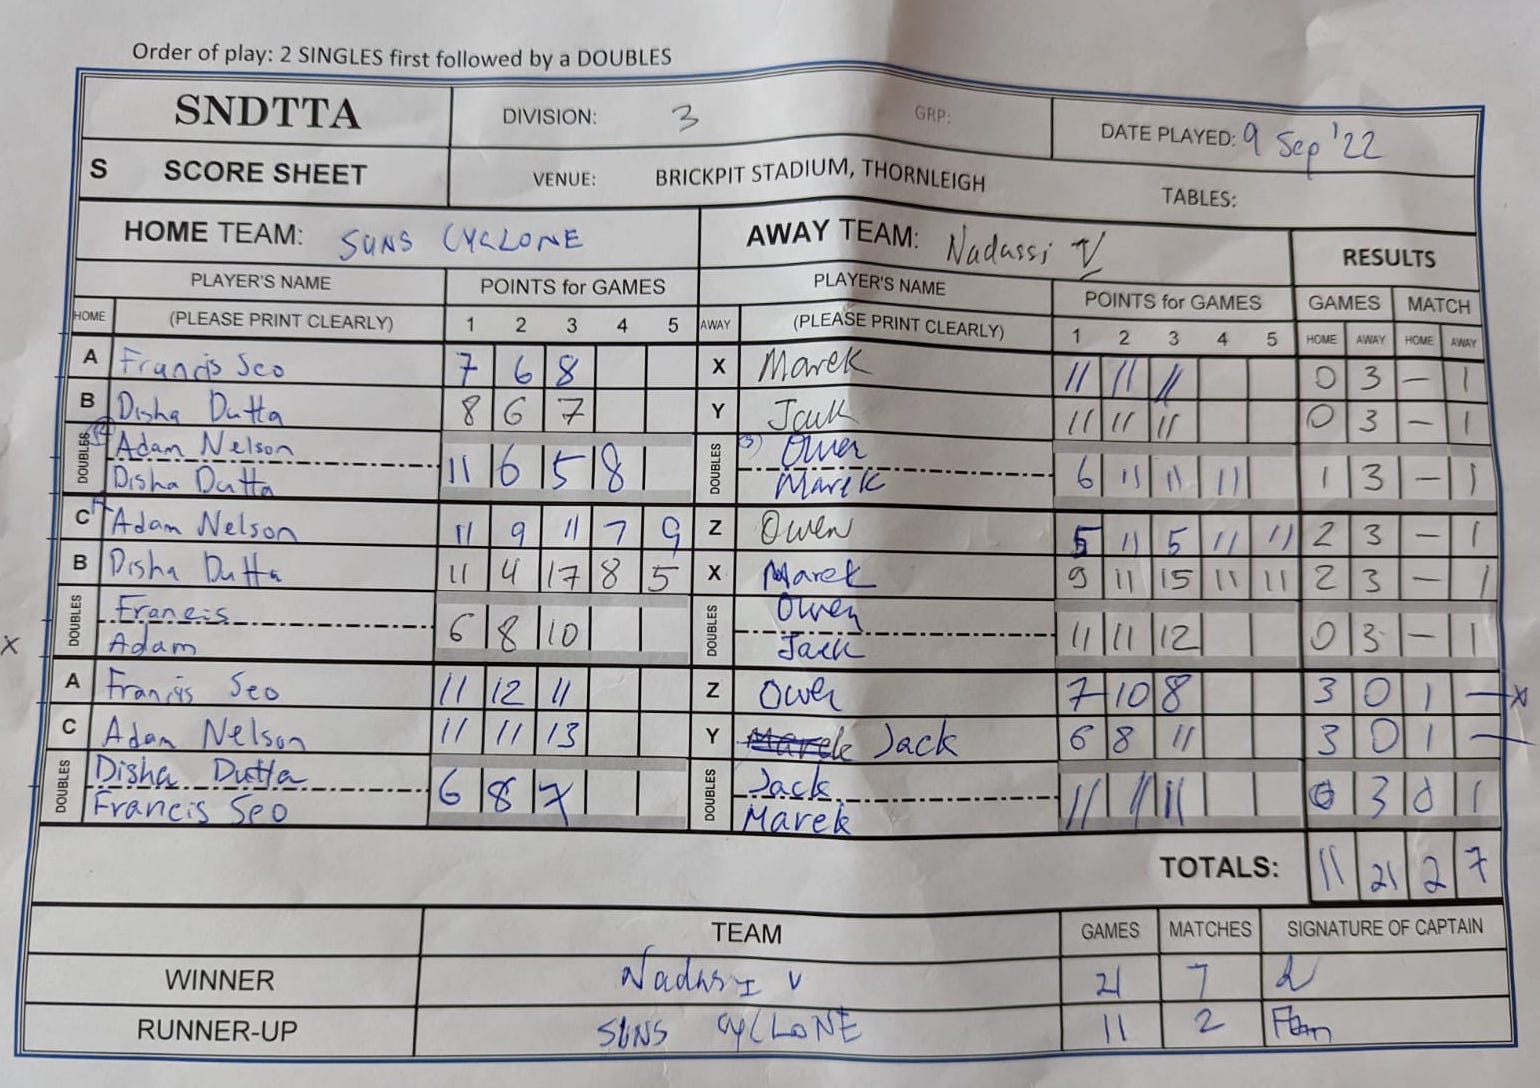 Order of play: 2 SINGLES first followed by a DOUBLES
SNDTTA DIVISION: 3 GRP: DATE PLAYED: 9 Sep '22
S SCORE SHEET VENUE: BRICKPIT STADIUM, THORNLEIGH TABLES:
HOME TEAM: SUNS CYCLONE AWAY TEAM: Nadassi V RESULTS
PLAYER'S NAME POINTS for GAMES PLAYER'S NAME POINTS for GAMES GAMES MATCH
HOME (PLEASE PRINT CLEARLY) 1 2 3 4 5 AWAY (PLEASE PRINT CLEARLY) 1 2 3 4 5 HOME AWAY HOME AWAY
A Francis Seo 7 6 8 X Marek 11 11 11 0 3 – 1
B Disha Dutta 8 6 7 Y Jack 11 11 11 0 3 – 1
DOUBLES Adam Nelson 11 6 5 8 DOUBLES (3) Owen 6 11 11 11 1 3 – 1
Disha Dutta Marek
C Adam Nelson 11 9 11 7 9 Z Owen 5 11 5 11 11 2 3 – 1
B Disha Dutta 11 4 17 8 5 X Marek 9 11 15 11 11 2 3 – 1
DOUBLES Francis 6 8 10 DOUBLES Owen 11 11 12 0 3 – 1
X Adam Jack
A Francis Seo 11 12 11 Z Owen 7 10 8 3 0 1 – x
C Adam Nelson 11 11 13 Y Marek Jack 6 8 11 3 0 1 –
DOUBLES Disha Dutta 6 8 7 DOUBLES Jack 11 11 11 0 3 0 1
Francis Seo Marek
TOTALS: 11 21 2 7
TEAM GAMES MATCHES SIGNATURE OF CAPTAIN
WINNER Nadassi V 21 7
RUNNER-UP SUNS CYCLONE 11 2